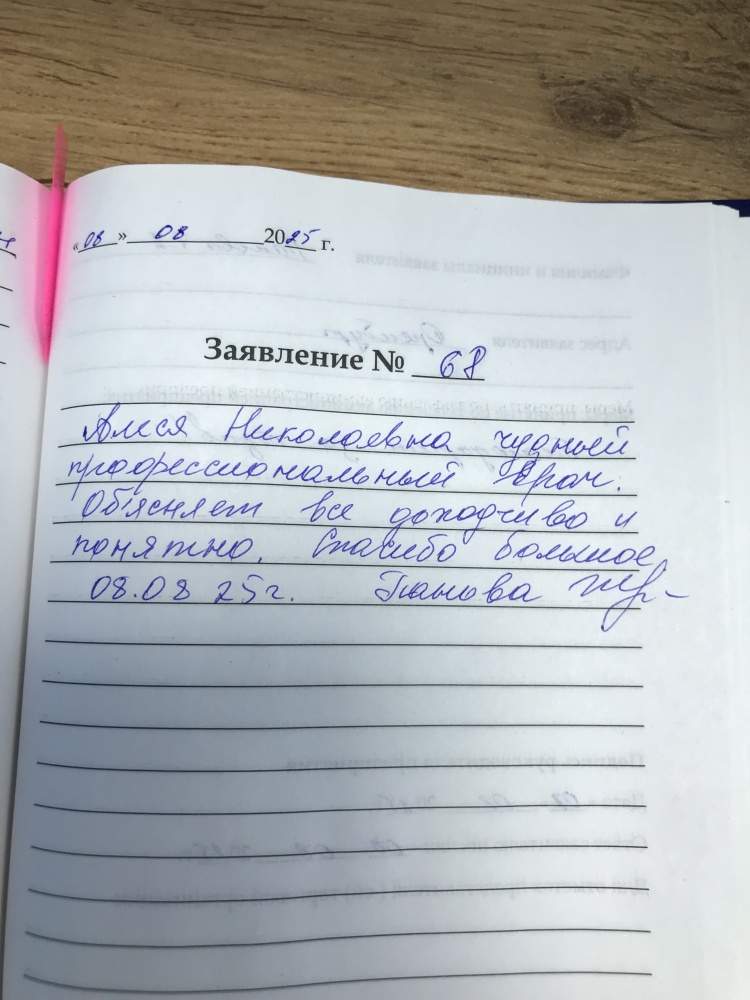 «08» 08 2025 г.
Заявление № 68
Алеся Николаевна чудный
профессиональный врач.
Объясняет все доходчиво и
понятно. Спасибо большое
08.08 25г.